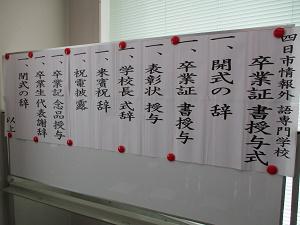 四日市情報外語専門学校
卒業証書授与式
一、開式の辞
一、卒業証書授与
一、表彰状授与
一、学校長式辞
一、来賓祝辞
祝電披露
一、卒業記念品授与
一、卒業生代表謝辞
一、閉式の辞
以上